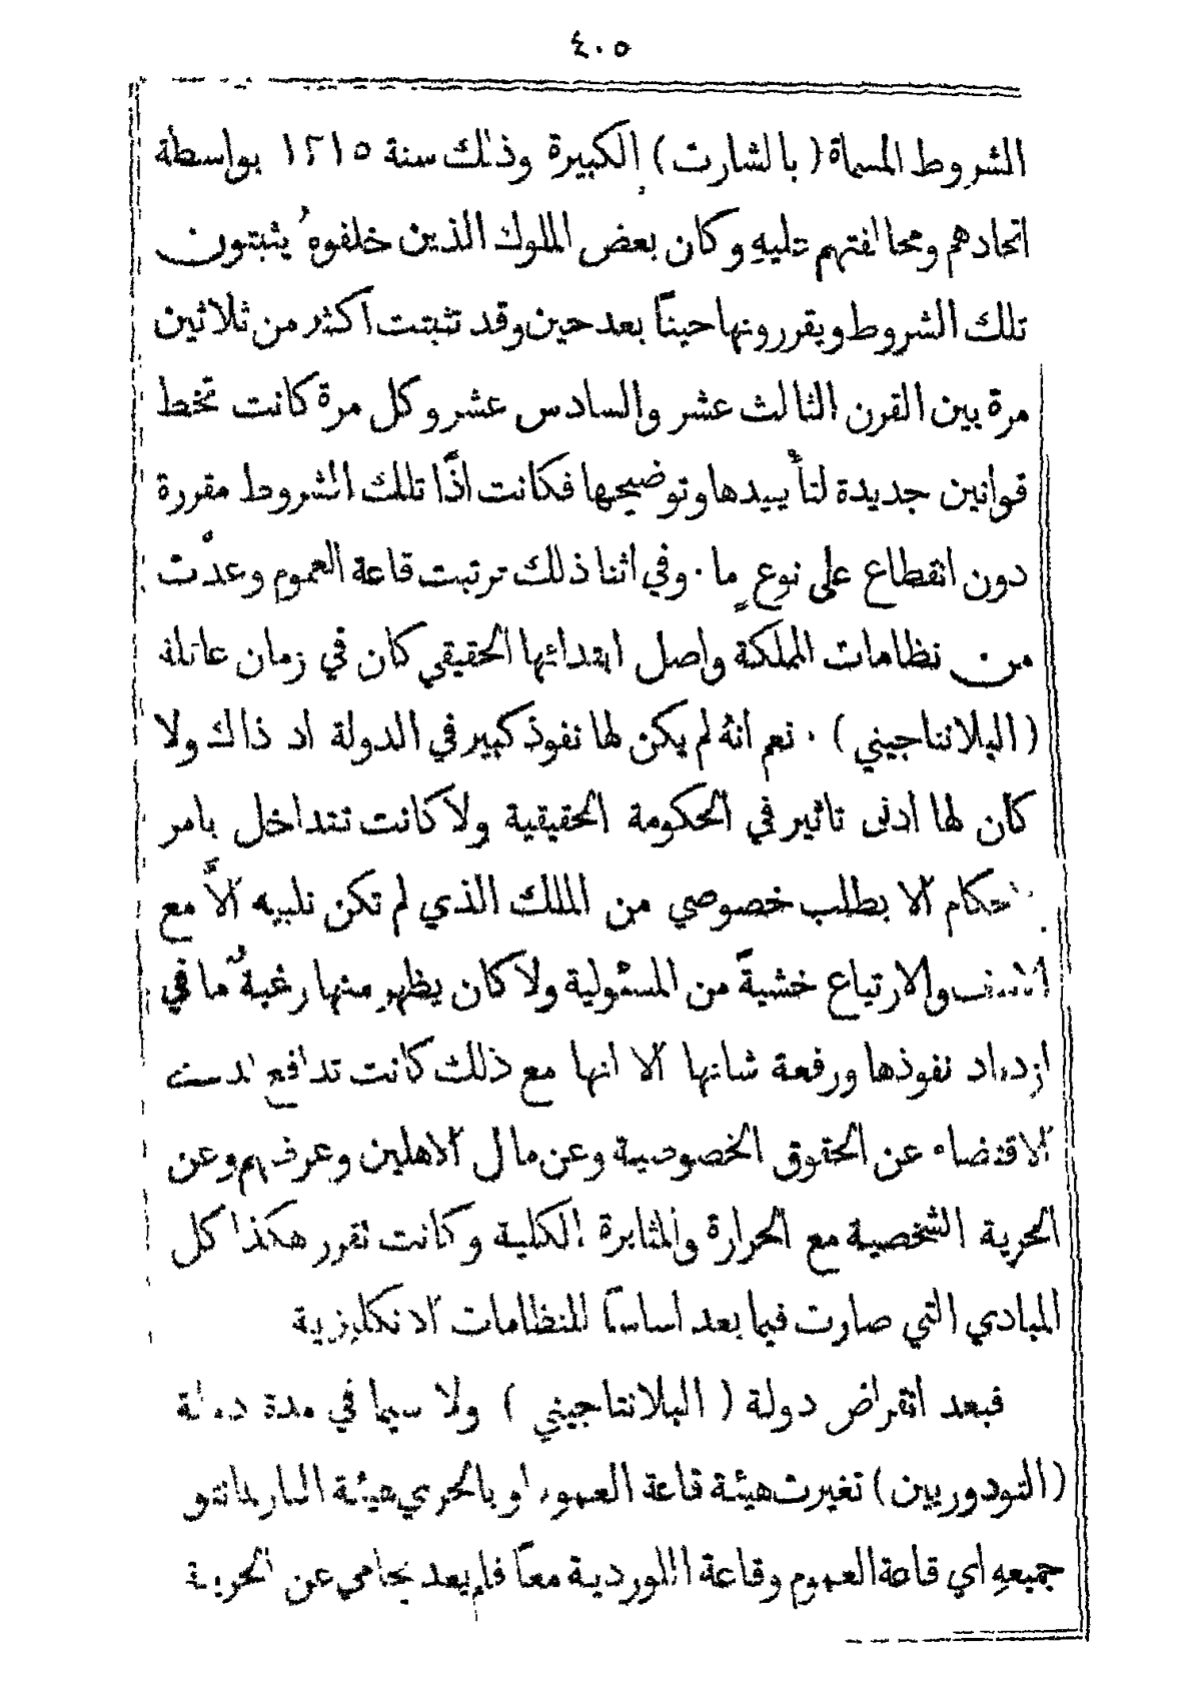 ٤٠٥
الشروط المسماة (بالشارت) الكبيرة وذلك سنة ١٢١٥ بواسطة
اتحادهم ومحالفتهم عليهِ وكان بعض الملوك الذين خلفوهُ يثبتون
تلك الشروط ويقررونها حينًا بعد حين وقد تثبتت اكثر من ثلاثين
مرة بين القرن الثالث عشر والسادس عشر وكل مرة كانت تخط
قوانين جديدة لتأييدها وتوضيحها فكانت اذًا تلك الشروط مقررة
دون انقطاع على نوعٍ ما . وفي اثنا ذلك ترتبت قاعة العموم وعدَّت
من نظامات المملكة واصل ابتدائها الحقيقي كان في زمان عائلة
(البلانتاجيني) . نعم انهُ لم يكن لها نفوذ كبير في الدولة اذ ذاك ولا
كان لها ادنى تاثير في الحكومة الحقيقية ولا كانت تتداخل بامر
الاحكام الا بطلب خصوصي من الملك الذي لم تكن تلبيه الاَّ مع
والارتياع خشيةً من المسئولية ولا كان يظهر منها رغبةٌ ما في
ازدياد نفوذها ورفعة شانها الا انها مع ذلك كانت تدافع
الاقتضاء عن الحقوق الخصوصية وعن مال الاهلين وعرضهم وعن
الحرية الشخصية مع الحرارة والمثابرة الكلية وكانت تقرر هكذا كل
المبادي التي صارت فيما بعد اساسًا للنظامات الانكليزية
فبعد انقراض دولة (البلانتاجيني) ولا سيما في مدة دولة
(التودوريين) تغيرت هيئة قاعة العموم او بالحري هيئة البارلمانتو
جميعهِ اي قاعة العموم وقاعة اللوردية معًا فلم يعد يحامي عن الحرية